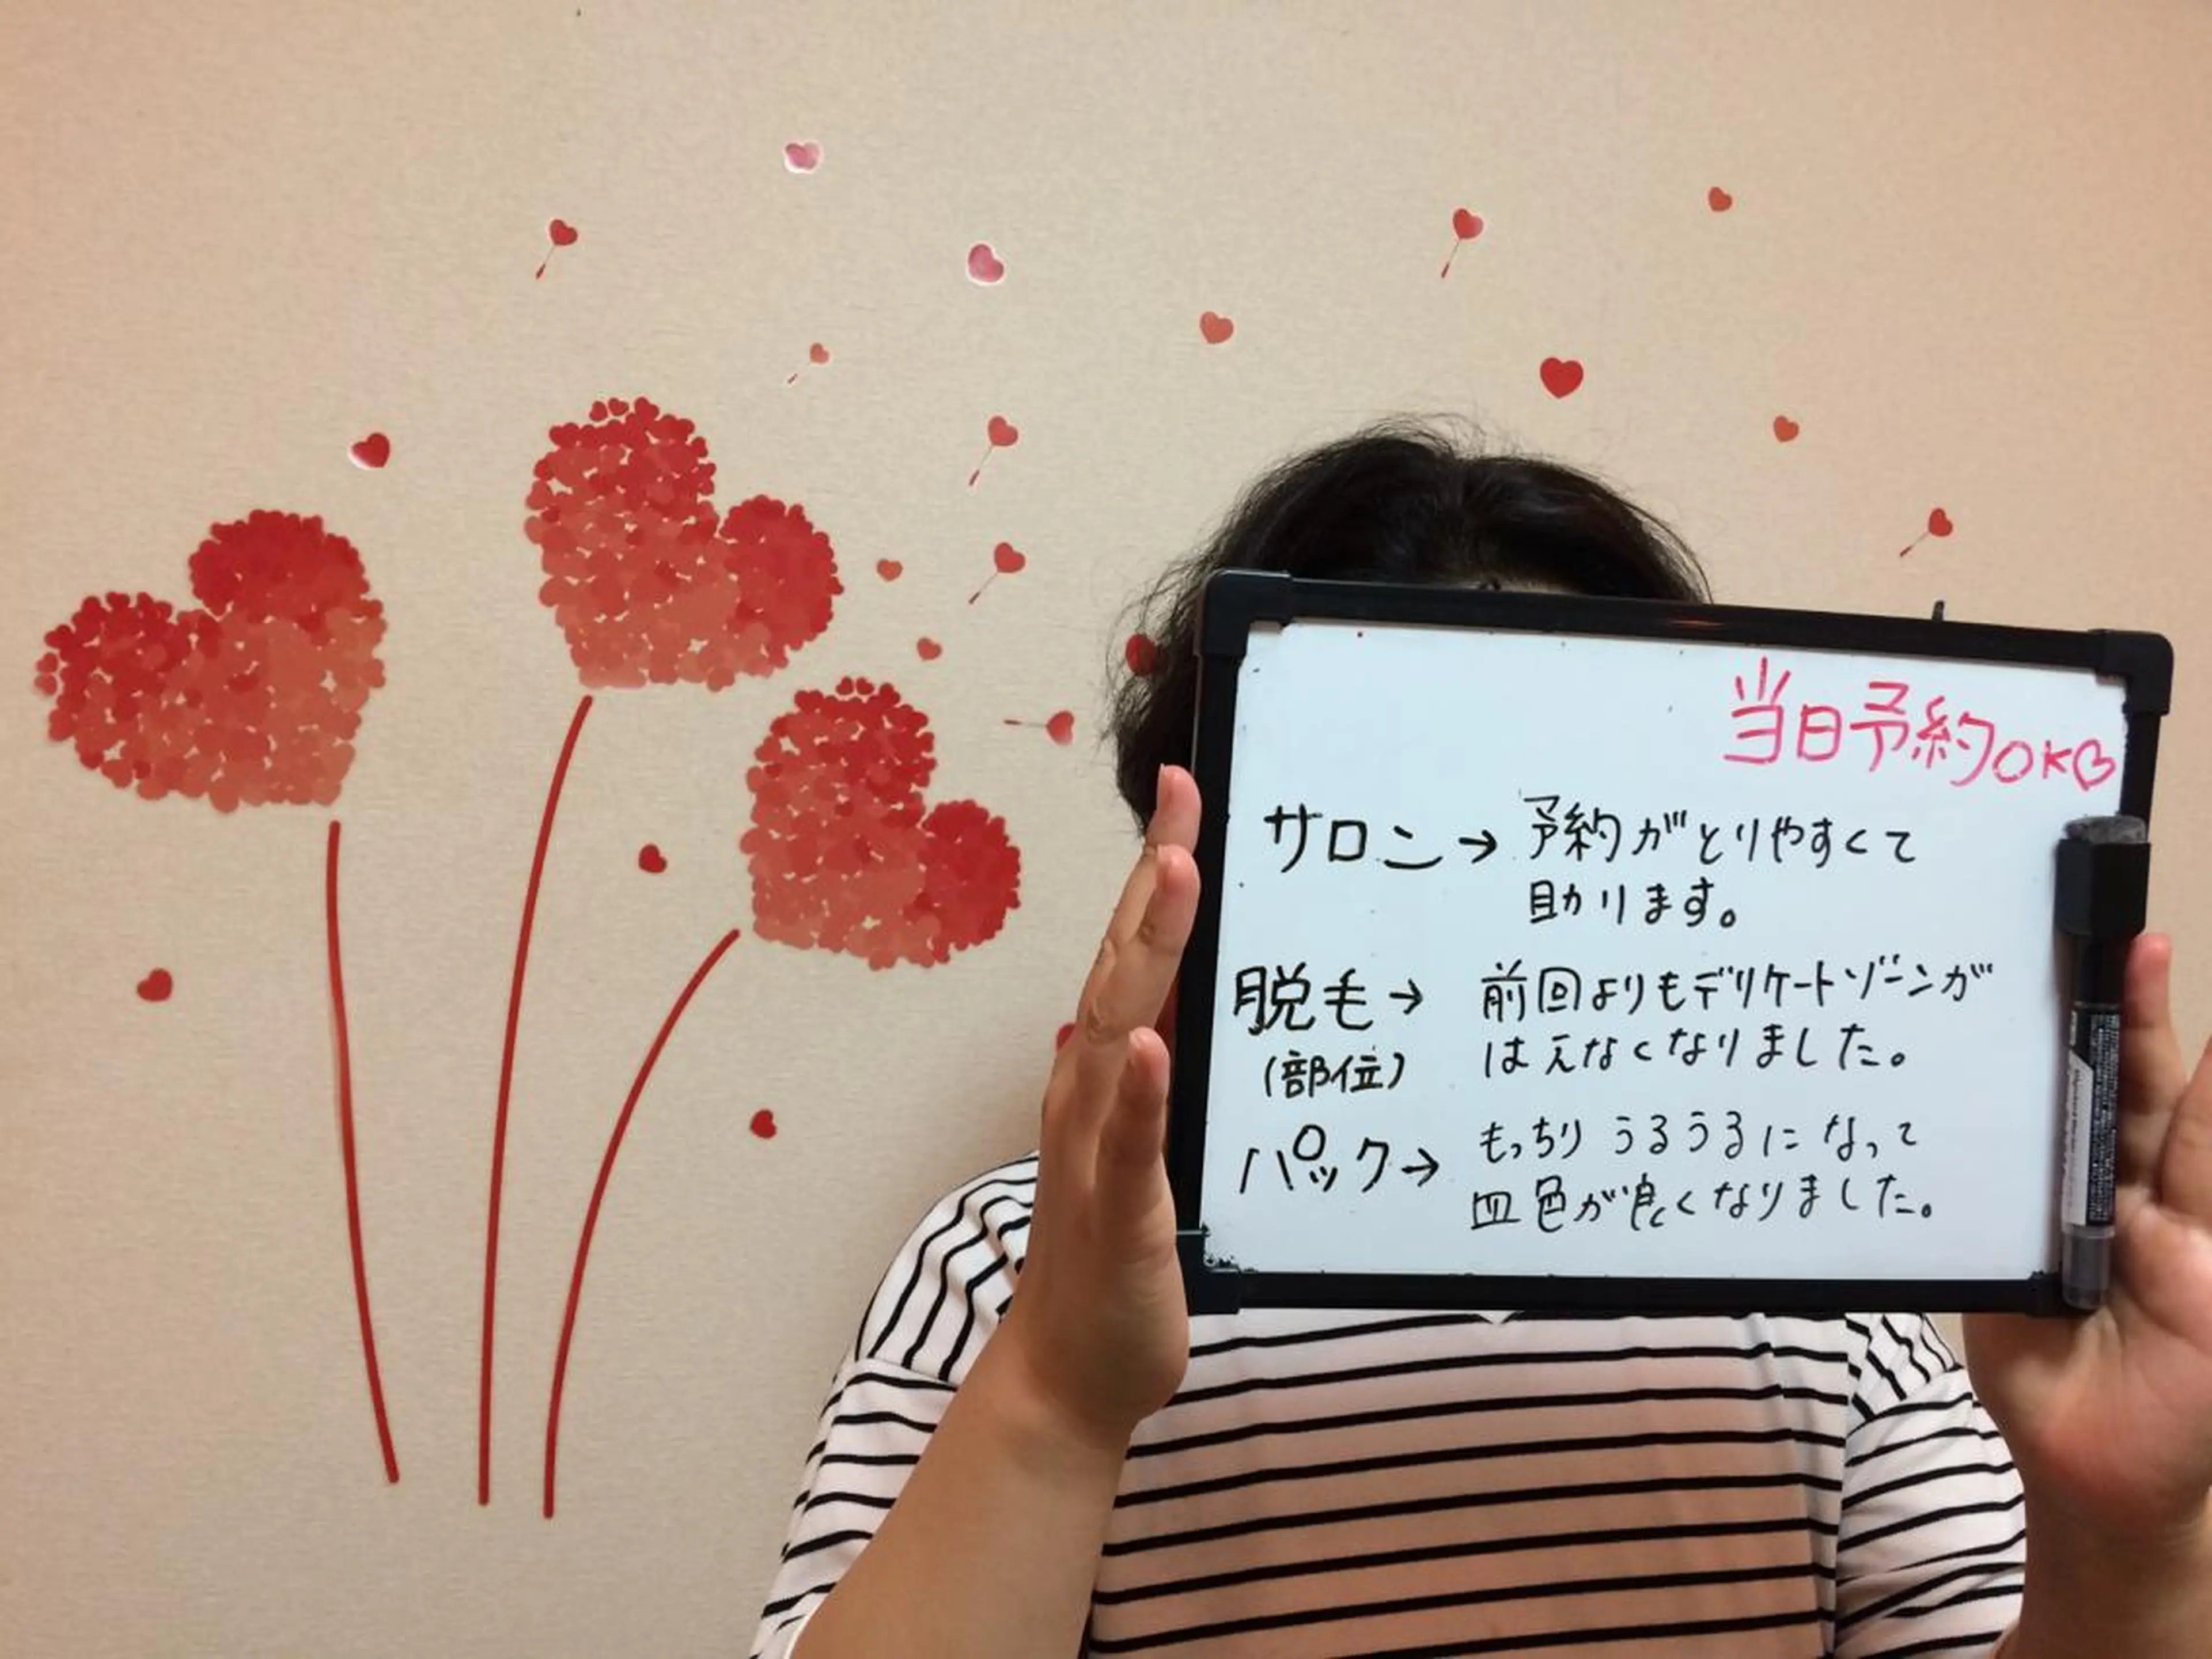 当日予約OK♡
サロン→予約がとりやすくて
助ります。
脱毛→前回よりもデリケートゾーンが
(部位)はえなくなりました。
パック→もっちりうるうるになって
血色が良くなりました。